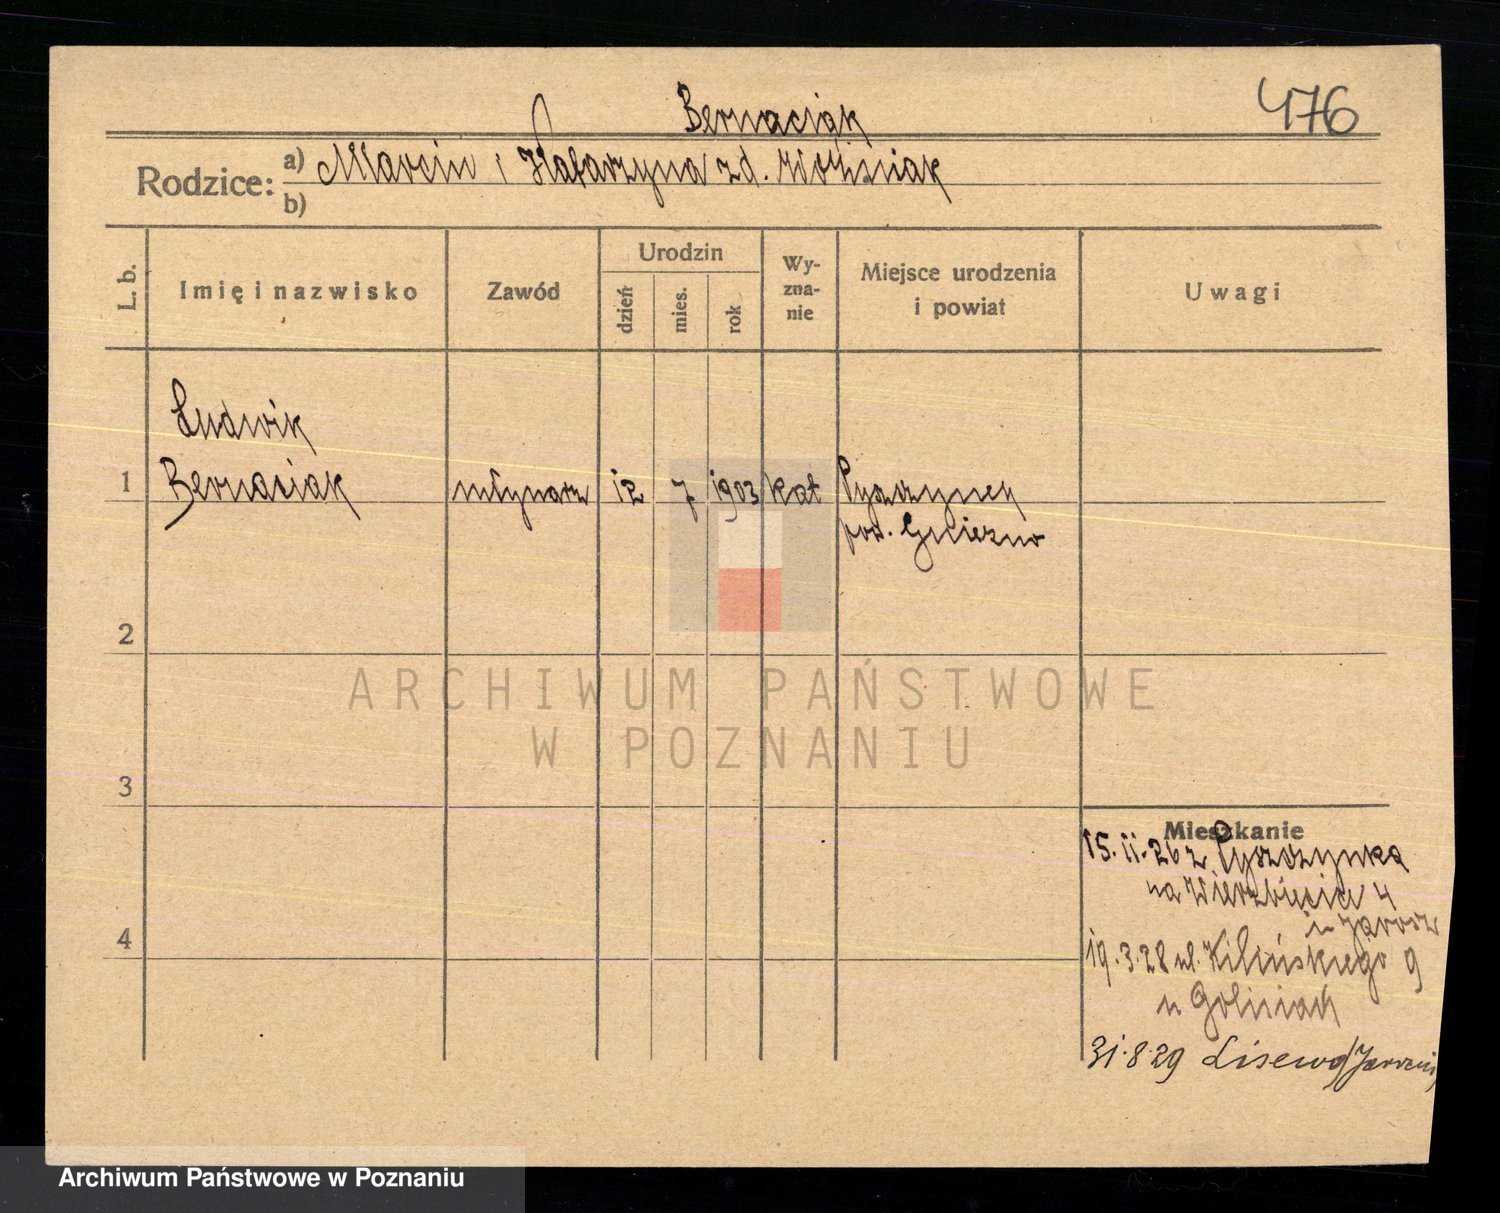 Bernaciak
476
Rodzice: a) Marcin i Katarzyna zd. Woźniak
b)
L. b.
Imię i nazwisko
Zawód
Urodzin
dzień
mies.
rok
Wy-
zna-
nie
Miejsce urodzenia
i powiat
Uwagi
Ludwik
1 Bernaciak młynarz 12 7 1903 kat Pyszczynek
pow. Gniezno
2
3
4
Mieszkanie
15.11.26 z Pyszczynka
na Wierzbięcice 4
u Jarosz
19.3.28 ul. Kilińskiego 9
u Goliniak
31.8.29 Lisewo/Jarocin
ARCHIWUM PAŃSTWOWE
W POZNANIU
Archiwum Państwowe w Poznaniu